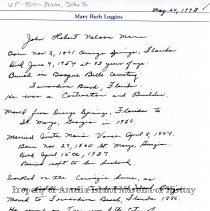 VF-Bio-Mann, John R
May 25, 1998
Mary Ruth Loggins
John Robert Nelson Mann
Born Nov. 2, 1861 Orange Springs, Florida
Died June 9, 1954 at 93 years of age.
Buried in Bosque Bello Cemetery
Fernandina Beach, Florida
He was a Contractor and Builder
Moved from Orange Springs, Florida to
St. Marys, Georgia in 1880.
Married Cintie Maria Vance April 8, 1884.
Born Nov. 27, 1860 St. Marys, Georgia
Died April 15th, 1937
Buried next to her husband.
Worked on the Carnegie home, as
Property of Amelia Island Museum of History
Moved to Fernandina Beach, Florida, 1886.